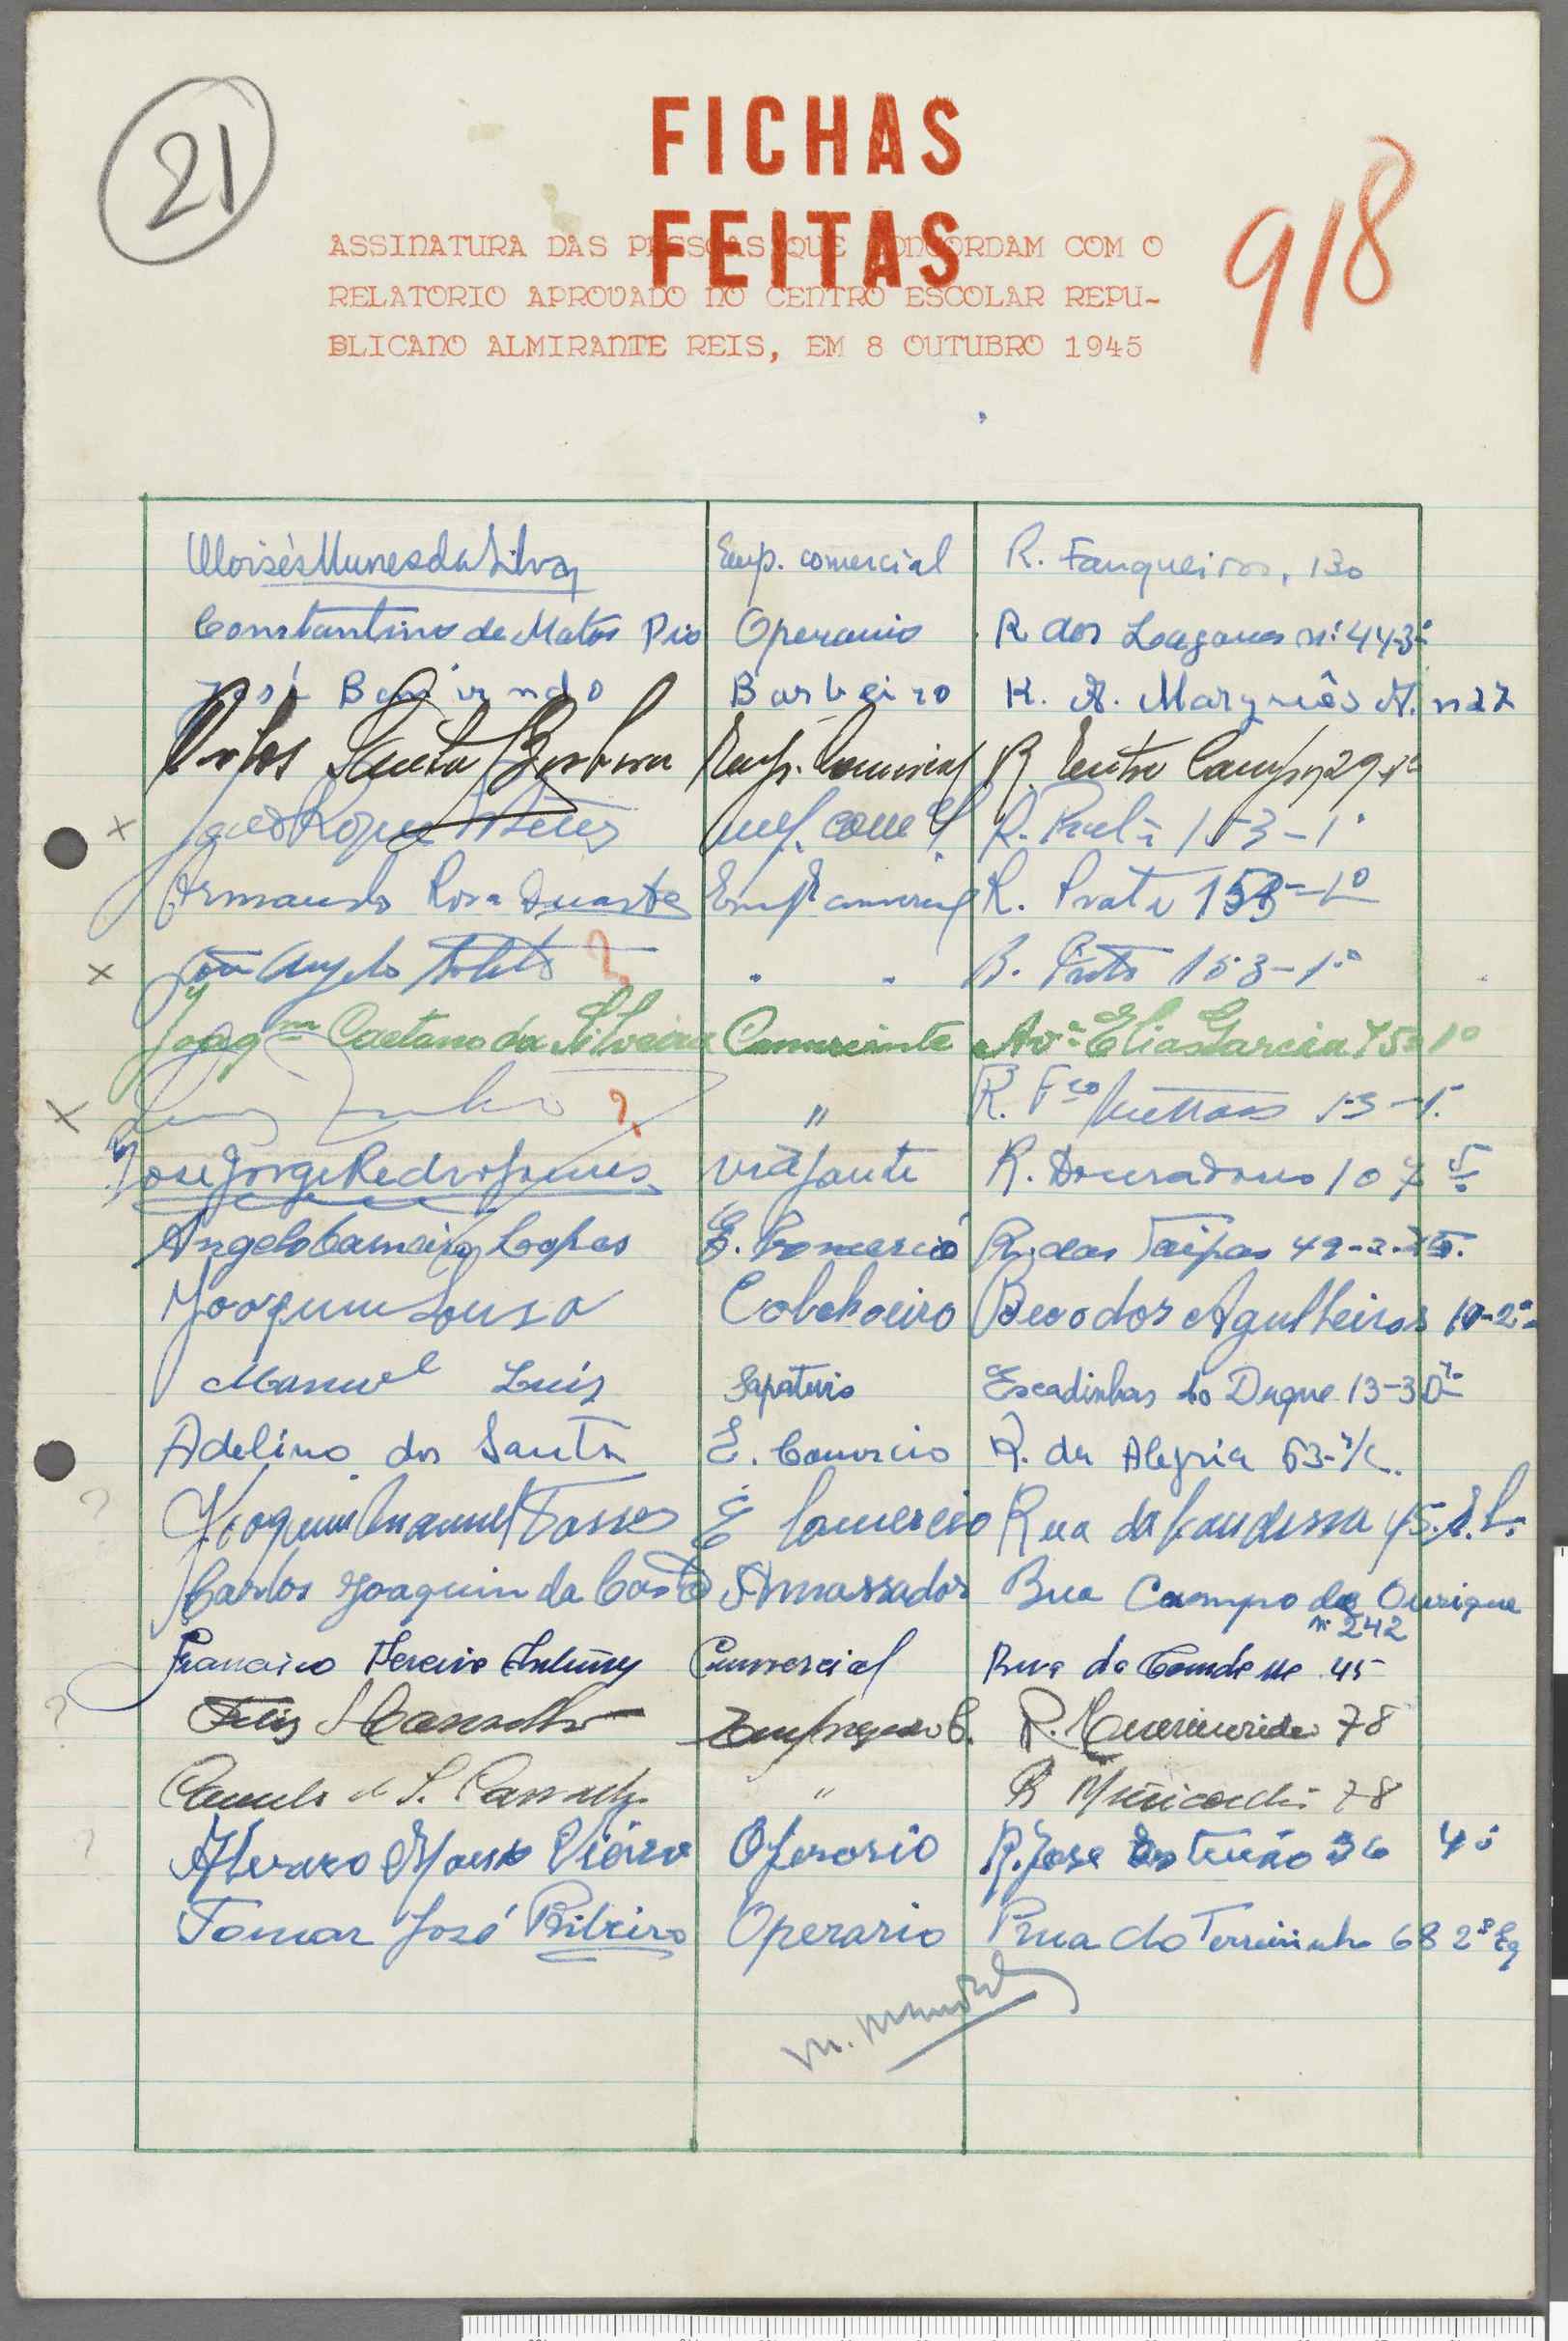 21
FICHAS
FEITAS
918
ASSINATURA DAS PESSOAS QUE CONCORDAM COM O
RELATORIO APROVADO NO CENTRO ESCOLAR REPU-
BLICANO ALMIRANTE REIS, EM 8 OUTUBRO 1945
Moisés Nunes da Silva Emp. comercial R. Fanqueiros, 130
Constantino de Matos Pio Operario R dos Lagares nº 44-3º
José Barbeiro R. A. Marquês A. n 27
Carlos Santa Barbara Emp. Comercial R. Entre Campos 29
x Lopes R. Prata 153-1º
Armando Rosa Duarte Emp. comercial R. Prata 153-1º
x João Angelo ? " " R. Prata 153-1º
Joaqm Caetano da Silveira Comerciante Avª Elias Garcia 75 1º
x ? " R. Fco 13-1º
José Jorge Pedro viajante R. Douradores 107 5º
Angelo Carneiro Lopes E. Comercio R. das Taipas 49-2-
Joaquim Sousa Colchoeiro Beco dos Agulheiros 10-2º
Manuel Luís Sapateiro Escadinhas do Duque 13-3 Dto
Adelino dos Santos E. Comercio R. da Alegria 63-r/c.
? Joaquim Manuel E Comercio Rua da Condessa 45
Carlos Joaquim da Costa Amassador Rua Campo de Ourique
nº 242
Francisco Pereira Antunes Comercial Rua da Condessa 45
? Felis Carvalho Empregado C. R. 78
Camilo de S. Carvalho " R 78
? Alvaro Operario R. José Estevão 36 4º
Tomar José Ribeiro Operario Rua do Terreirinho 68 2º Eq